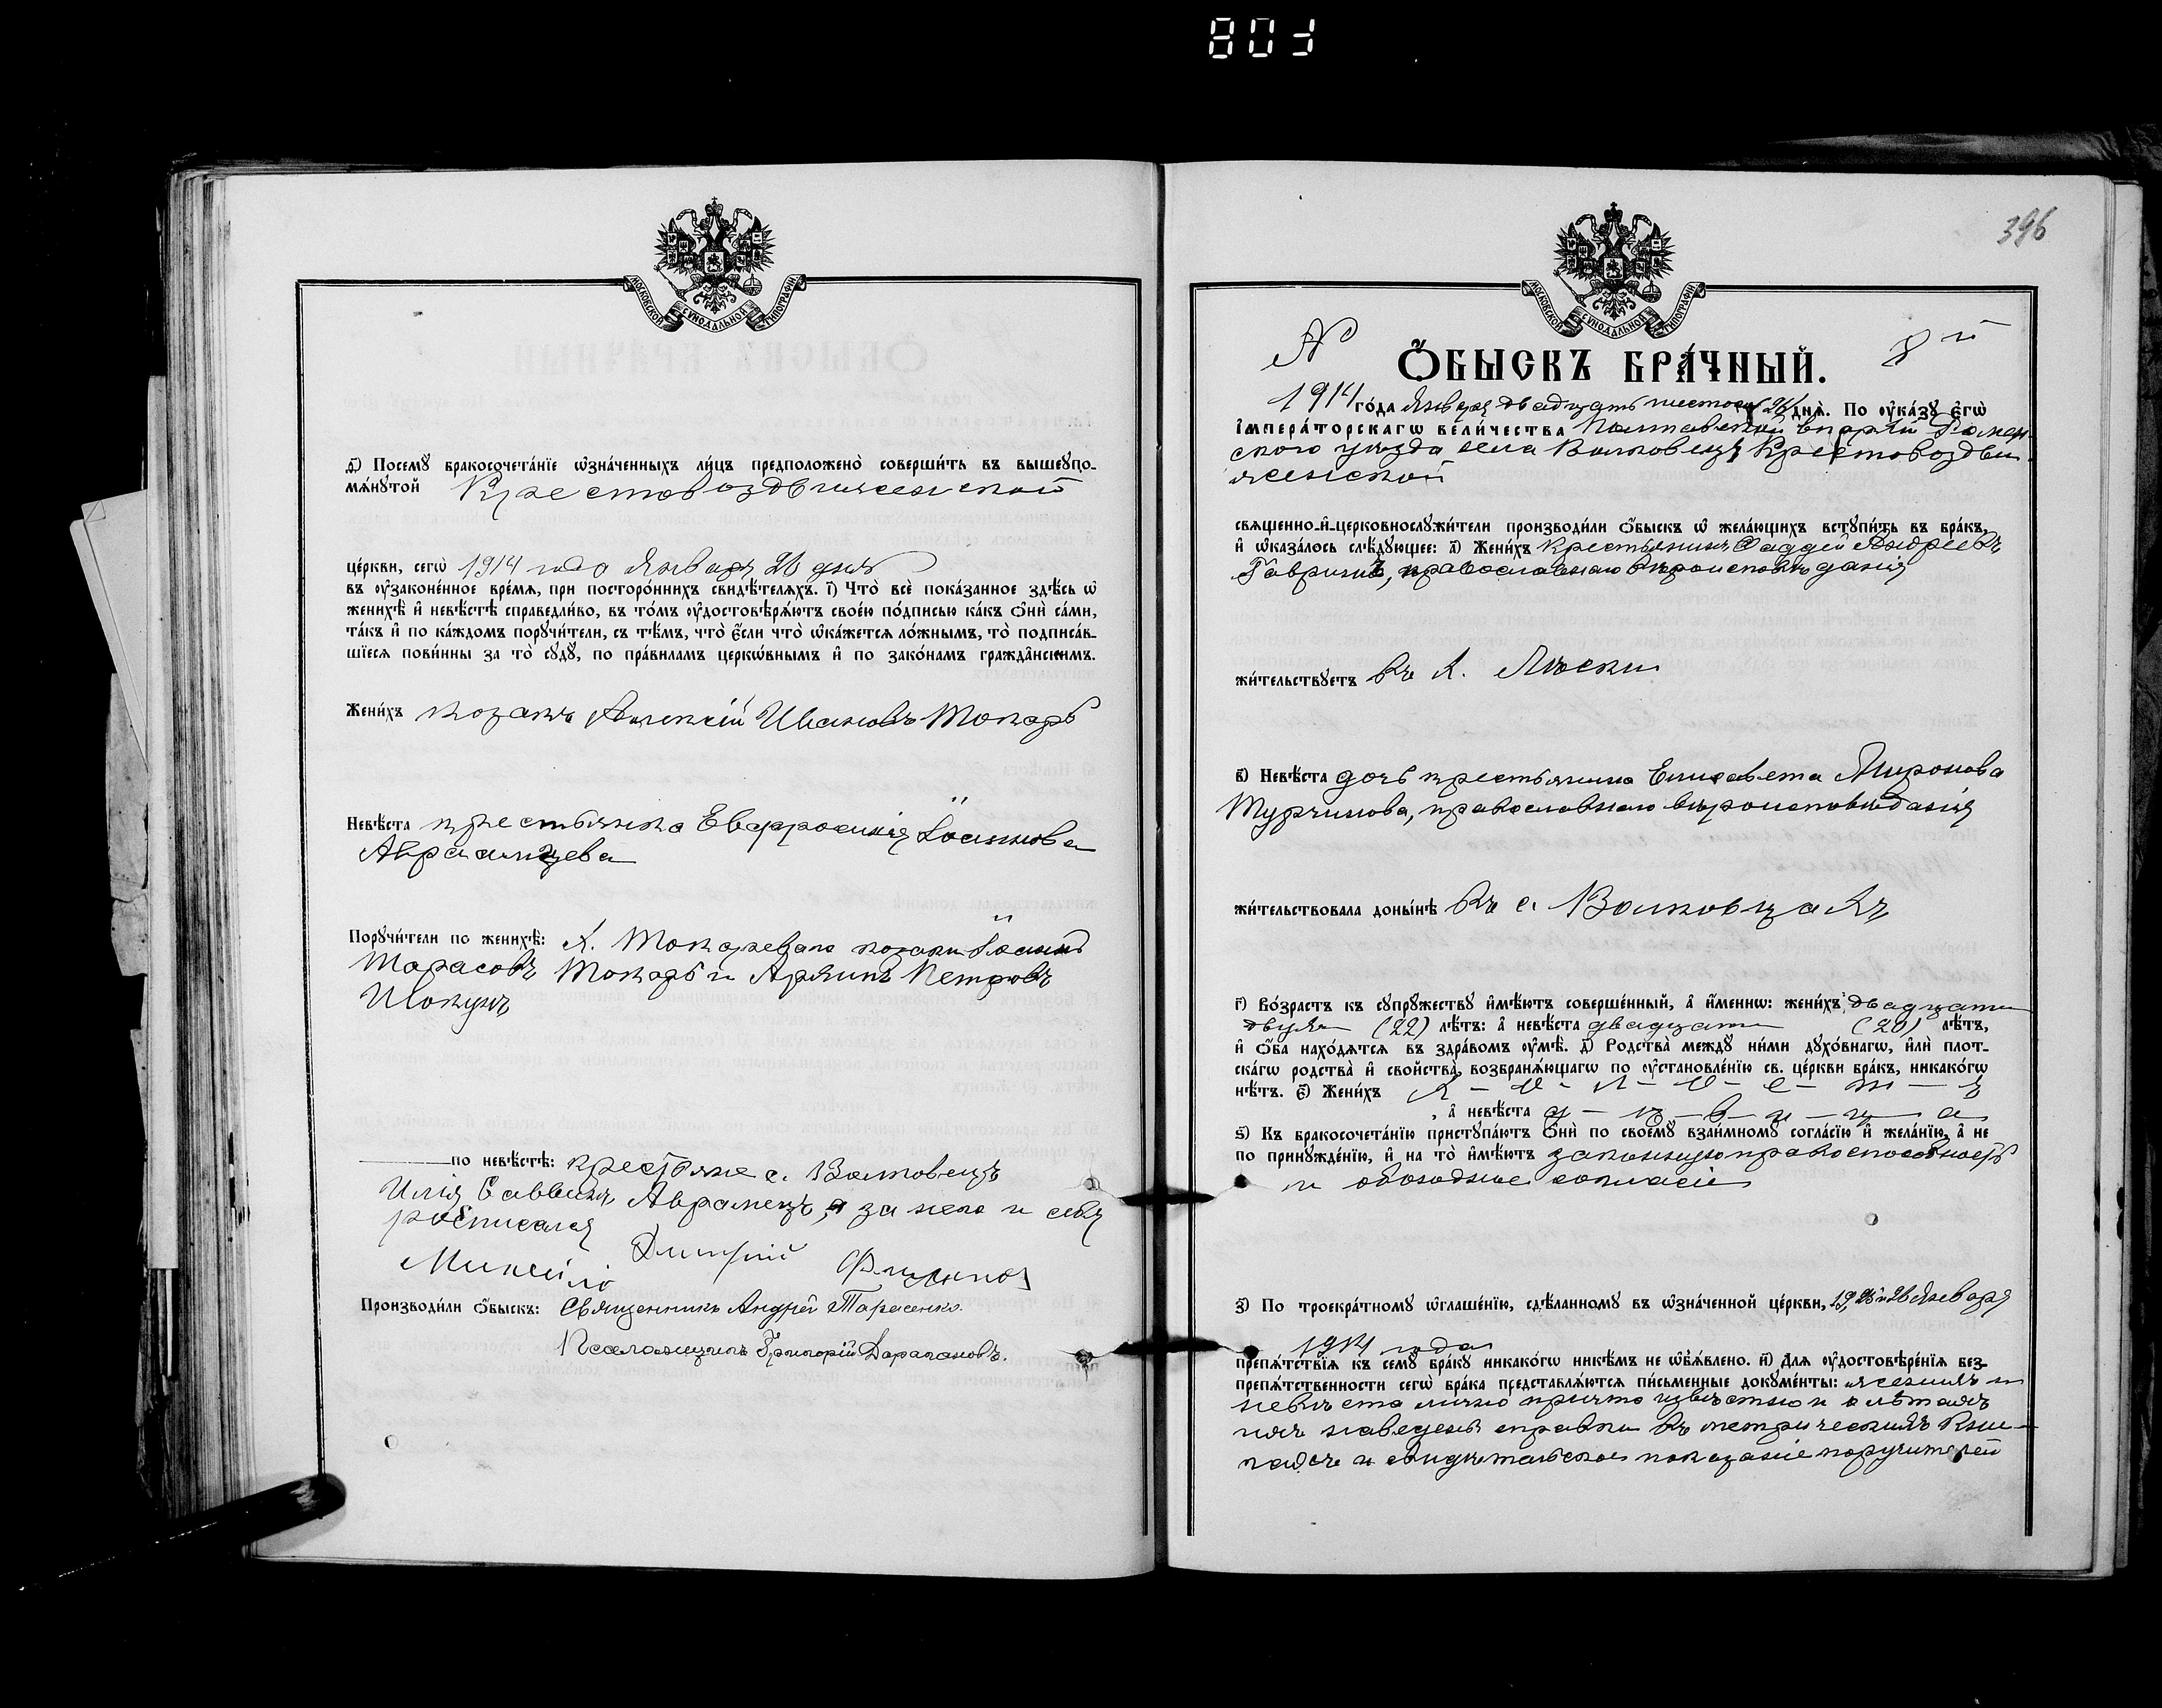 МОСКОВСКОЙ СѴНОДАЛЬНОЙ ТИПОГРАФІИ
д҃) Посемꙋ̀ бракосочета́нїе ѡ҆зна́ченныхъ ли́цъ предположено̀ соверши́ть въ вышеꙋпо-
мѧ́нꙋтой Крестовоздвиженской
це́ркви, сегѡ̀ 1914 года Января 26 дня
въ ᲂу҆зако́ненное вре́мѧ, при посторо́ннихъ свидѣ́телѧхъ. і҃) Что̀ всѐ пока́занное здѣ́сь ѡ҆
женихѣ̀ и҆ невѣ́стѣ справедли́во, въ то́мъ ᲂу҆достовѣрѧ́ютъ свое́ю по́дписью ка́къ ѻ҆нѝ са́ми,
та́къ и҆ по ка́ждомъ порꙋчи́тели, съ тѣ́мъ, что̀ є҆́сли что̀ ѡ҆ка́жетсѧ ло́жнымъ, то̀ подписа́в-
шїесѧ пови́нны за то̀ сꙋдꙋ̀, по пра́виламъ церкѡ́внымъ и҆ по зако́намъ гражда̂нскимъ.
Жени́хъ козакъ Алексій Ивановъ Токарь
Невѣ́ста крестьянка Евфросинія Іоаннова
Аврамцева
Порꙋчи́тели по женихѣ̀: х. Токарева козаки Іоаннъ
Тарасовъ Токарь и Петровъ
по невѣ́стѣ: крестьяне с. Волковецъ
Илія Саввинъ Аврамецъ, а за него и себя
росписался
Дмитрій
Производи́ли ѻ҆́быскъ: Священникъ Андрей Тарасенко.
Псаломщикъ Григорій
396
МОСКОВСКОЙ СѴНОДАЛЬНОЙ ТИПОГРАФІИ
№ 8й
Ѻ҆́БЫСКЪ БРА́ЧНЫЙ.
1914 го́да Января двадцать шестого 26 днѧ̀. По ᲂу҆ка́зꙋ Є҆гѡ̀
І҆мпера́торскагѡ вели́чества Полтавской епархіи Ромен-
скаго уѣзда села Волковецъ Крестовоздви-
женской
свѧще́нно-и҆-церковнослꙋжи́тели производи́ли ѻ҆́быскъ ѡ҆ жела́ющихъ встꙋпи́ть въ бра́къ,
и҆ ѡ҆каза́лось слѣ́дꙋющее: а҃) Жени́хъ крестьянинъ Фаддей Андреевъ
Гавришъ, православнаго вѣроисповѣданія
жи́тельствꙋетъ въ х. Лѣски
в҃) Невѣ́ста дочь крестьянина Елисавета Миронова
Турчинова, православнаго вѣроисповѣданія
жи́тельствовала доны́нѣ въ с. Волковцахъ
г҃) Во́зрастъ къ сꙋпрꙋ́жествꙋ и҆мѣ́ютъ соверше́нный, а҆ и҆́меннѡ: жени́хъ двадцати
двухъ (22) лѣ́тъ: а҆ невѣ́ста двадцати (20) лѣ́тъ,
и҆ ѻ҆́ба нахо́дѧтсѧ въ здра́вомъ ᲂу҆мѣ̀. д҃) Родства̀ междꙋ ни́ми дꙋхо́внагѡ, и҆лѝ плот-
ска́гѡ родства̀ и҆ свойства̀, возбранѧ́ющагѡ по ᲂу҆становле́нїю св. це́ркви бра́къ, никако́гѡ
нѣ́тъ. є҃) Жени́хъ х - о - л - о - с - т - ъ
, а҆ невѣ́ста д - ѣ - в - и - ц - а
ѕ҃) Къ бракосочета́нїю пристꙋпа́ютъ ѻ҆нѝ по своемꙋ̀ взаи́мномꙋ согла́сїю и҆ жела́нїю, а҆ не
по принꙋжде́нїю, и҆ на то̀ и҆мѣ́ютъ законную правоспособность
и обоюдное согласіе
з҃) По троекра́тномꙋ ѡ҆глаше́нїю, сдѣ́ланномꙋ въ ѡ҆зна́ченной це́ркви, 19, 25 и 26 Января
1914 года
препѧ́тствїѧ къ семꙋ̀ бра́кꙋ никако́гѡ никѣ́мъ не ѡ҆б̾ѧ́влено. и҃) Длѧ ᲂу҆достовѣре́нїѧ без-
препѧ́тственности сегѡ̀ бра́ка представлѧ́ютсѧ пи́сьменные докꙋме́нты: женихъ и
невѣста лично причту извѣстно и о лѣтахъ
ихъ наведены справки въ метрическихъ кни-
гахъ и свидѣтельское показаніе поручителей